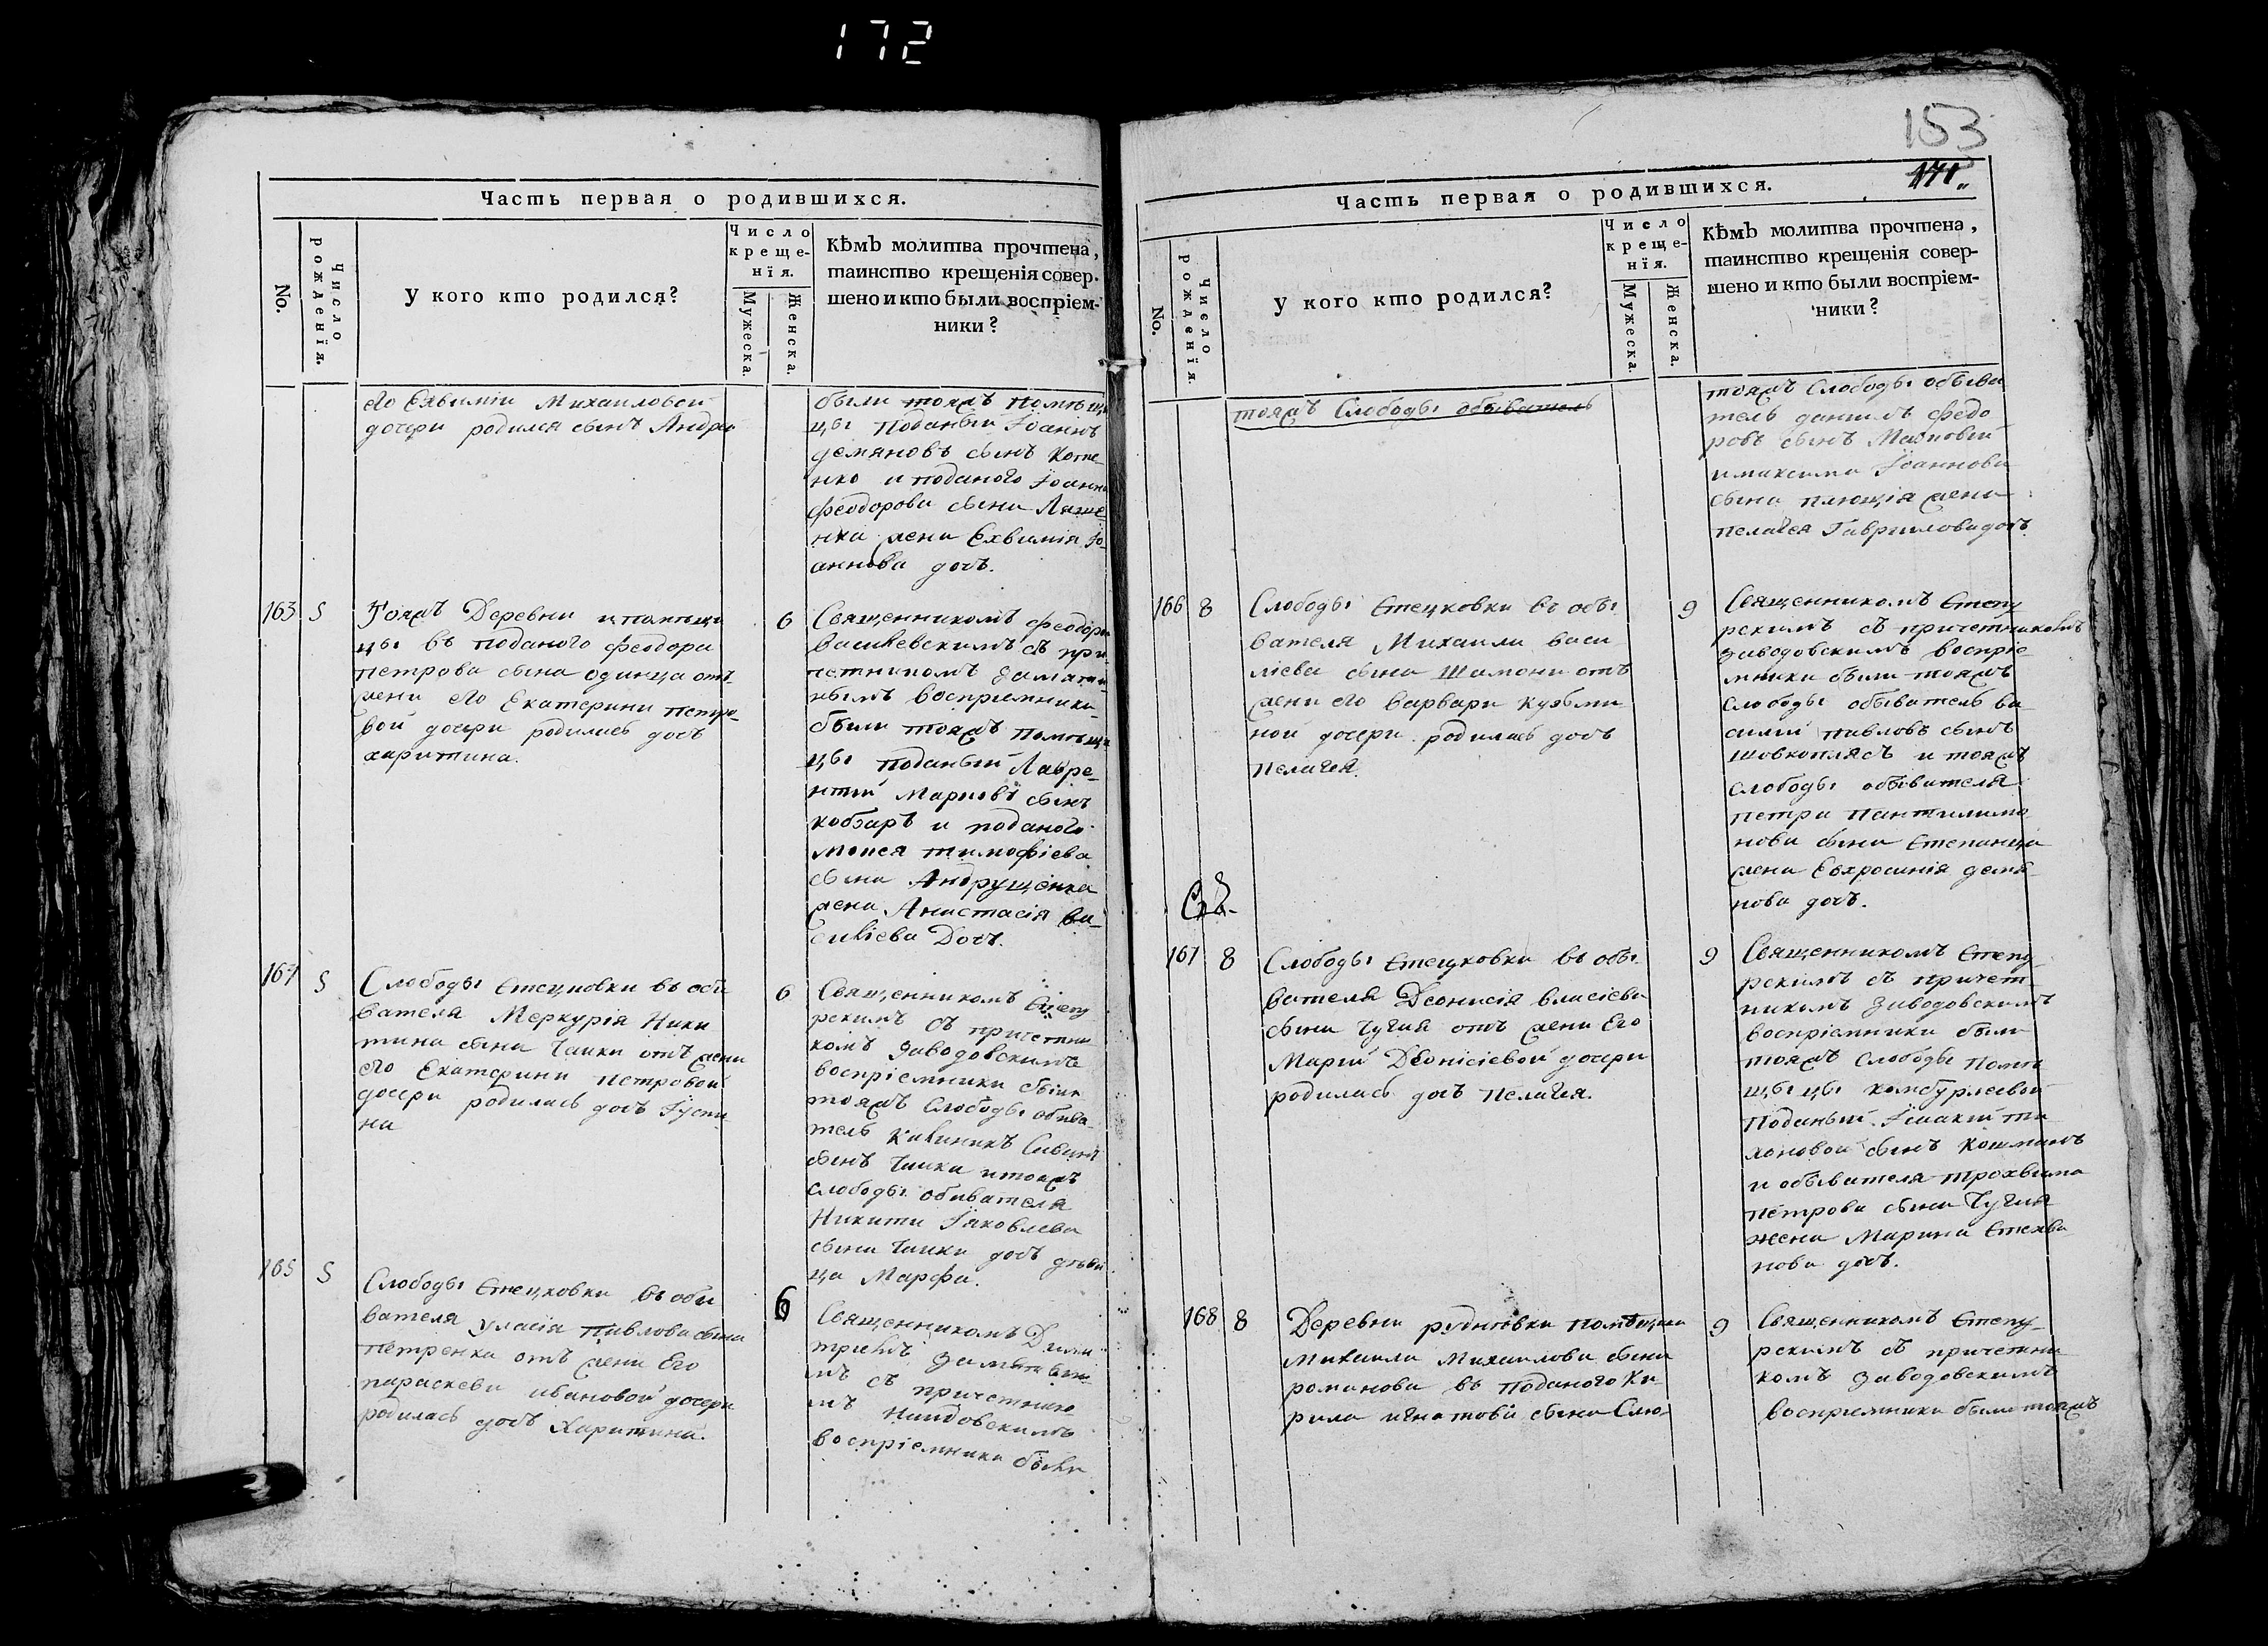 172
Часть первая о родившихся.
No.
Число рожденїя.
У кого кто родился?
Число
креще-
нїя.
Мужеска.
Женска.
Кѣмъ молитва прочтена,
таинство крещенія совер-
шено и кто были воспріем-
ники?
его Евѳиміи Михаиловой
дочери родился сынъ Андрей
были тояжъ помѣщи
цы поданый Іоаннъ
демяновъ сынъ
нко и поданого Іоанна
феодорова сына
нка жена Евѳимія Іо-
аннова дочъ.
163 5
Тояжъ Деревни и помѣщи
цы въ поданого феодора
петрова сына одинца отъ
жени его Екатерини петро-
вой дочери родилась дочъ
харитина.
6
Священникомъ феодоромъ
василевскимъ съ при-
четникомъ
нымъ воспріемники
были тояжъ помѣщи
цы поданый Лавре-
нтій Марковъ сынъ
кобзаръ и поданого
моисея тимофіева
сына Андрущенка
жена Анастасія ва-
силіева Дочъ.
164 5
Слободы Стецковки въ обы
вателя Меркурія Ники
тина сына Чайки отъ жени
его Екатерини Петровой
дочери родилась дочъ Іусти
на
6
Священникомъ Степу
рскимъ съ причетни
комъ Заводовскимъ
воспріемники были
тояжъ Слободы обыва
тель Калиникъ Савинъ
сынъ Чайка и тояжъ
слободы обывателя
Никити Іаковлева
сына Чайки дочъ дѣви
ца Марфа.
165 5
Слободы Стецковки въ обы
вателя уласія Павлова сына
петренка отъ жени Его
параскеви ивановой дочери
родилась дочъ Харитина.
6
Священникомъ Дими
тріемъ
мъ съ причетнико
мъ
воспріемники были
153
171
Часть первая о родившихся.
No.
Число рожденїя.
У кого кто родился?
Число
креще-
нїя.
Мужеска.
Женска.
Кѣмъ молитва прочтена,
таинство крещенія совер-
шено и кто были воспріем-
ники?
тояжъ Слободы обыватель
тояжъ Слободы обыва
тель даниилъ федо
ровъ сынъ
и максима Іоаннова
сына жена
пелагея Гавриилова дочъ.
166 8
Слободы Стецковки въ обы
вателя Михаила васи
ліева сына Шамони отъ
жени его варвари кузьми
ной дочери родилась дочъ
Пелагея.
9
Священникомъ Степу
рскимъ съ причетникомъ
Заводовскимъ воспріе
мники были тояжъ
слободы обыватель ва
силій павловъ сынъ
шовкоплясъ и тояжъ
слободы обывателя
петра Пантилимо
нова сына Степанца
жена Евхросинія демя
нова дочъ.
Ср.
167 8
Слободы Стецковки въ обы
вателя Деонисія власіева
сына Чугая отъ жени Его
Маріи Деонісіевой дочери
родилась дочъ Пелагея.
9
Священникомъ Степу
рскимъ съ причет
никомъ Заводовскимъ
воспріемники были
тояжъ Слободы помѣ
щыцы Комбурлеевой
поданый Іоакій ти
хоновой сынъ
и обывателя трохвима
петрова сына Чугая
жена Марина Стехва
нова дочъ.
168 8
Деревни рудновки помѣщика
Михаила Михаилова сына
романова въ поданого Ки-
рила игнатова сына Слю-
9
Священникомъ Степу-
рскимъ съ причетни
комъ Заводовскимъ
воспріемники были тояжъ